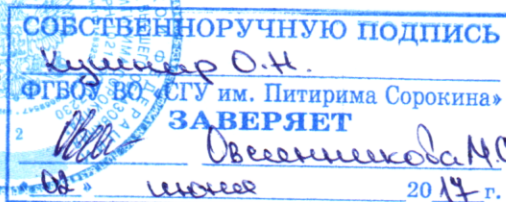 СОБСТВЕННОРУЧНУЮ ПОДПИСЬ
Кушнир О.Н.
ФГБОУ ВО «СГУ им. Питирима Сорокина»
ЗАВЕРЯЕТ
Овсянникова М.С
02 июня 2017 г.